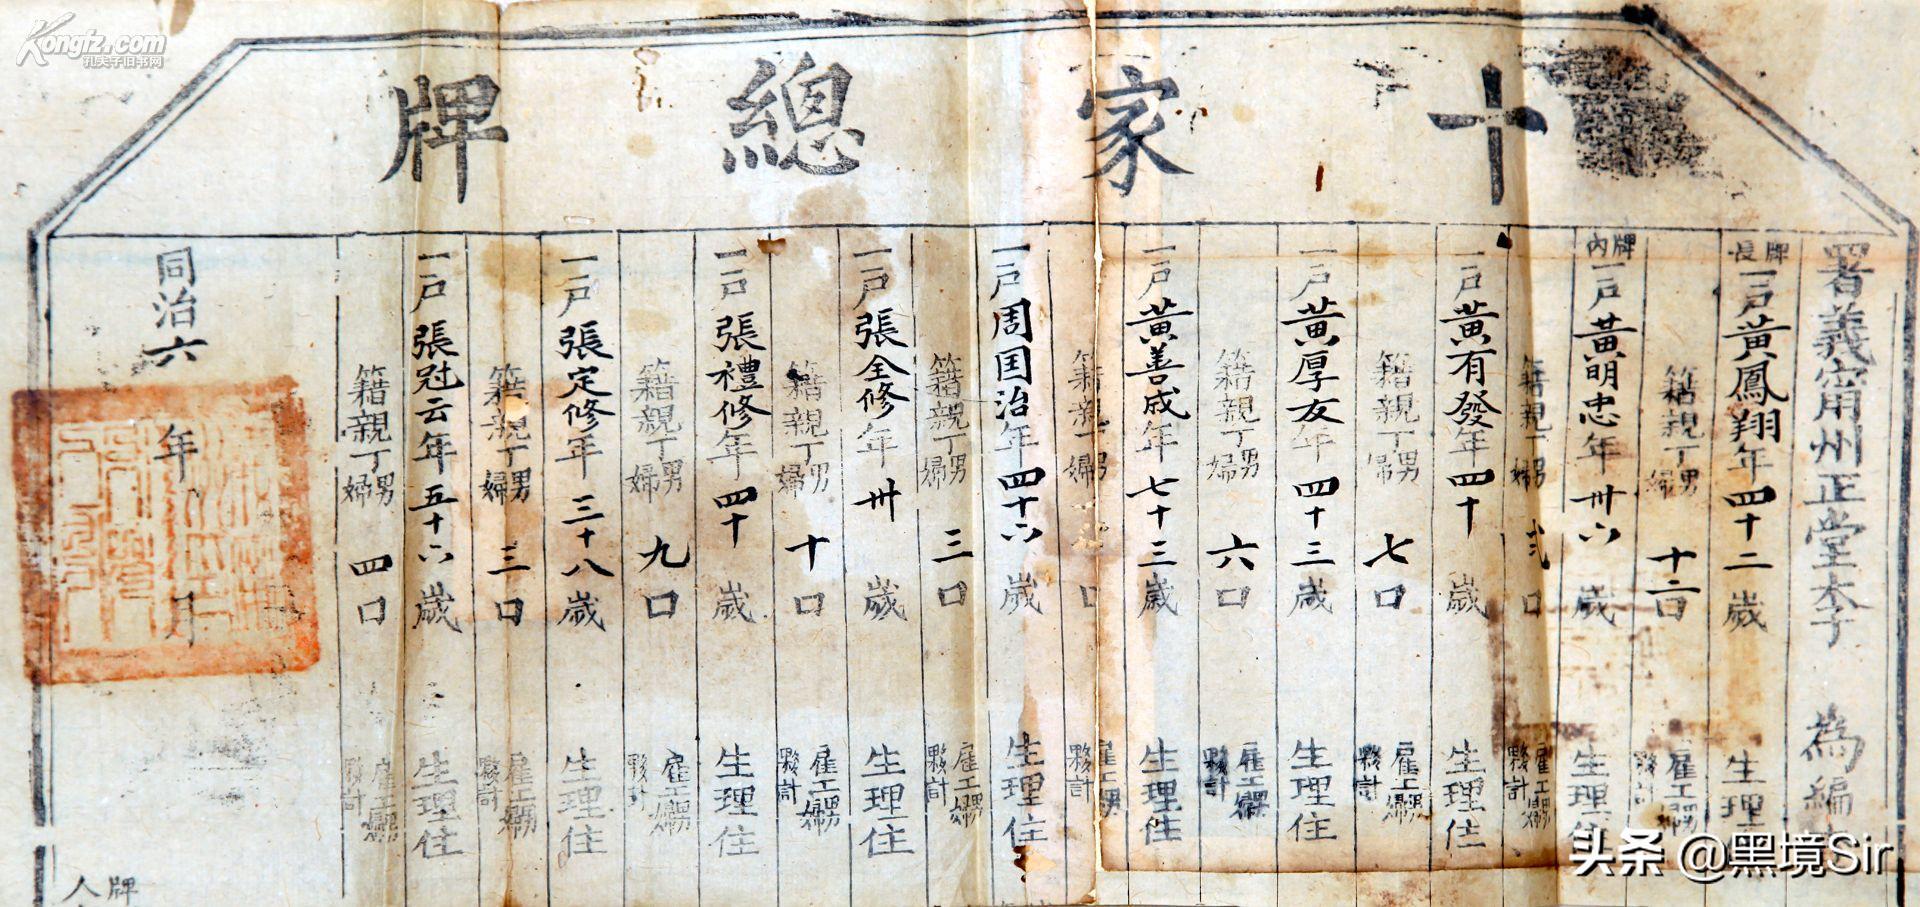 十家總牌
署義寧州正堂李 為編
牌長 一戶黃鳳翔年四十二歲 生理
籍親丁男婦十二口 雇工男婦 夥計
牌內 一戶黃明忠年卅六歲 生理住
籍親丁男婦弍口 雇工男婦 夥計
一戶黃有發年四十歲 生理住
籍親丁男婦七口 雇工男婦 夥計
一戶黃厚友年四十三歲 生理住
籍親丁男婦六口 雇工男婦 夥計
一戶黃善成年七十三歲 生理住
籍親丁男婦 口 雇工男婦 夥計
一戶周国治年四十六歲 生理住
籍親丁男婦三口 雇工男婦 夥計
一戶張全修年卅歲 生理住
籍親丁男婦十口 雇工男婦 夥計
一戶張禮修年四十歲 生理住
籍親丁男婦九口 雇工男婦 夥計
一戶張定修年三十八歲 生理住
籍親丁男婦三口 雇工男婦 夥計
一戶張冠云年五十六歲 生理住
籍親丁男婦四口 雇工男婦 夥計
同治六年 月
牌
人
Kongfz.com
孔夫子旧书网
头条 @黑境Sir